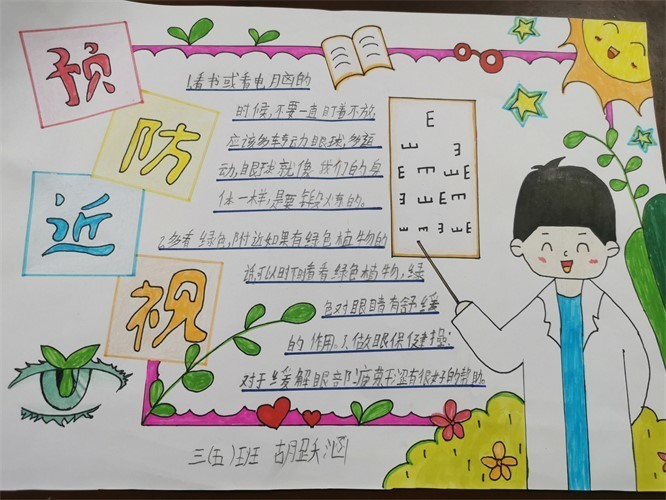 预
防
近
视
1.看书或看电脑的
时候,不要一直盯着不放,
应该多转动眼球,多运
动,眼球就像我们的身
体一样,是要锻火东的。
2.多看绿色,附近如果有绿色植物的
话,可以时不时看看绿色植物,绿
色对眼睛有舒缓
的作用。3.做眼保健操:
对于缓解眼部疲劳还有很好的帮助。
E
E E
E E E
E E E E
E E E E
三(五)班 胡